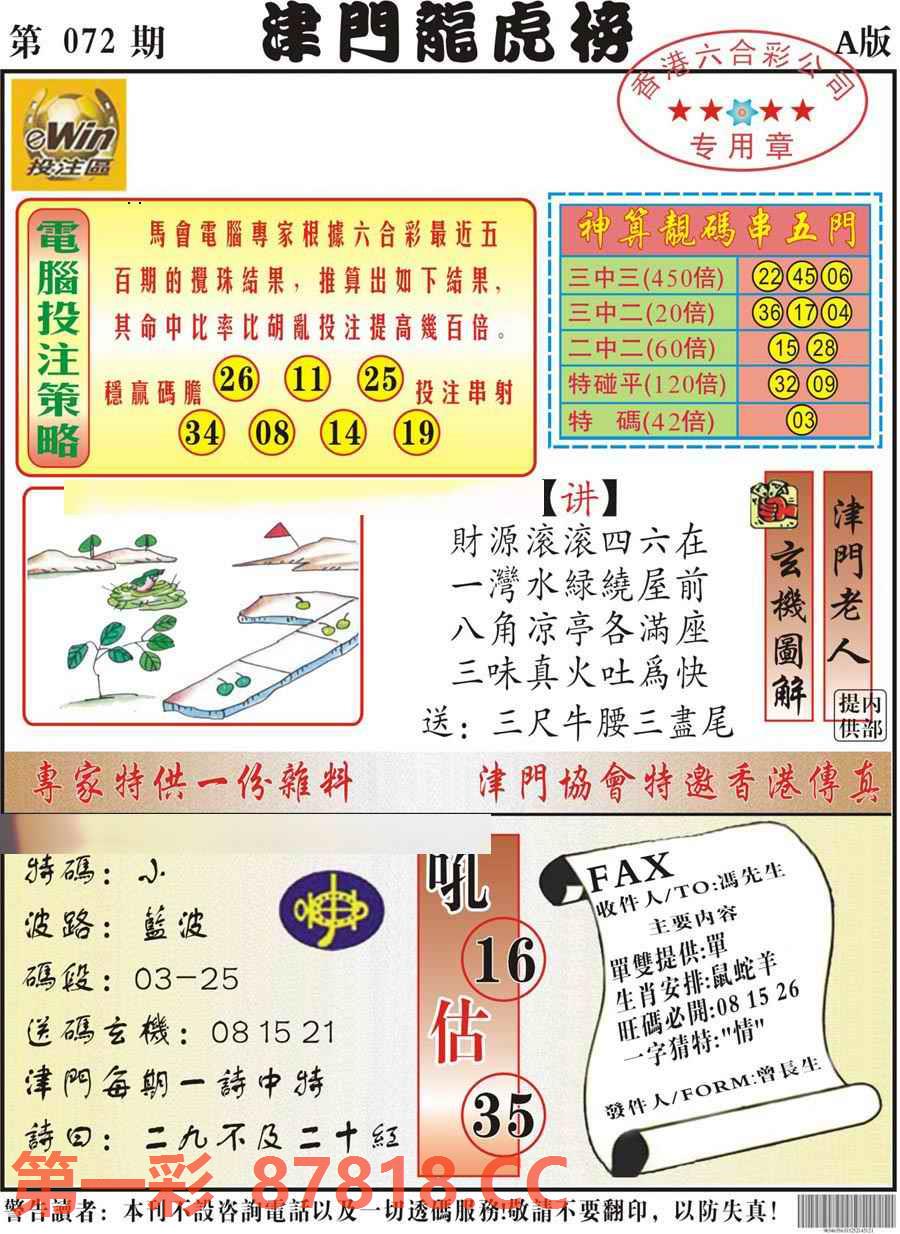 第 072 期
津門龍虎榜
A版
香港六合彩公司
专用章
eWin
投注區
電腦投注策略
馬會電腦專家根據六合彩最近五
百期的攪珠結果，推算出如下結果，
其命中比率比胡亂投注提高幾百倍。
穩贏碼膽 26 11 25 投注串射
34 08 14 19
神算靚碼串五門
三中三(450倍) 22 45 06
三中二(20倍) 36 17 04
二中二(60倍) 15 28
特碰平(120倍) 32 09
特 碼(42倍) 03
【讲】
財源滚滚四六在
一灣水緑繞屋前
八角凉亭各滿座
三味真火吐爲快
送：三尺牛腰三盡尾
玄機圖解
津門老人
内部提供
專家特供一份雜料
津門協會特邀香港傳真
特碼：小
波路：藍波
碼段：03-25
送碼玄機：08 15 21
津門每期一詩中特
詩曰：二九不及二十紅
吼
16
估
35
FAX
收件人/TO:馮先生
主要内容
單雙提供:單
生肖安排:鼠蛇羊
旺碼必開:08 15 26
一字猜特:"情"
發件人/FORM:曾長生
第一彩 87818.CC
警告讀者：本刊不設咨詢電話以及一切透碼服務!敬請不要翻印，以防失真!